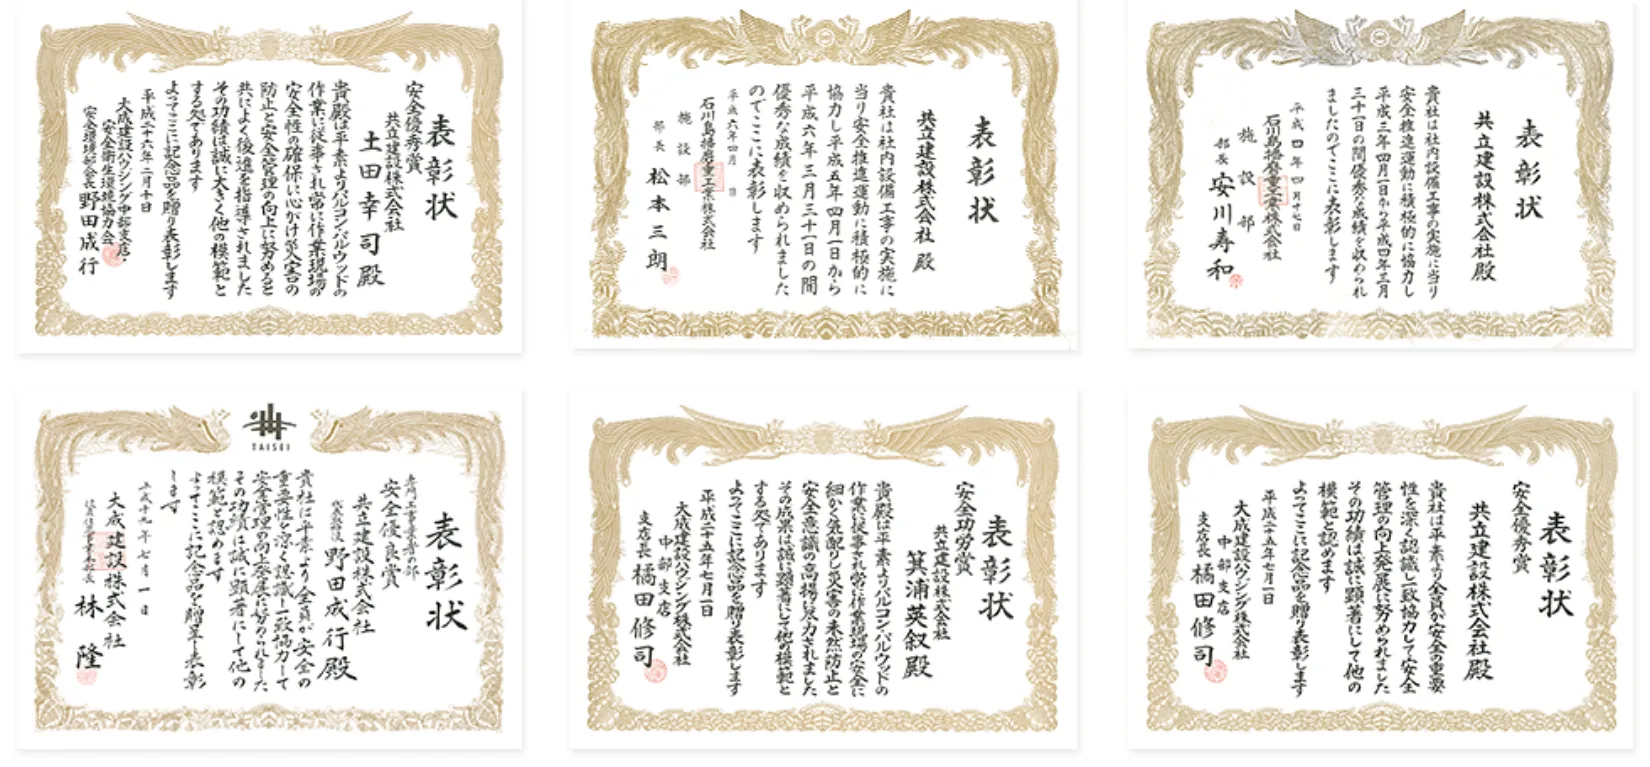 表彰状
安全優秀賞
共立建設株式会社
土田幸司殿
貴殿は平素よりパルコン・パルウッドの
作業に従事され常に作業現場の
安全性の確保に心がけ災害の
防止と安全管理の向上に努めると
共によく後進を指導されました
その功績は誠に大きく他の模範と
する処であります
よってここに記念品を贈り表彰します
平成二十六年二月十日
大成建設ハウジング中部支店
安全衛生環境協力会
安全環境部会長 野田成行
表彰状
共立建設株式会社殿
貴社は社内設備工事の実施に
当り安全推進運動に積極的に
協力し平成五年四月一日から
平成六年三月三十一日の間
優秀な成績を収められました
のでここに表彰します
平成六年四月 日
石川島播磨重工業株式会社
施設部
部長 松本三朗
表彰状
共立建設株式会社殿
貴社は社内設備工事の実施に当り
安全推進運動に積極的に協力し
平成三年四月一日から平成四年三月
三十一日の間優秀な成績を収められ
ましたのでここに表彰します
平成四年四月十七日
石川島播磨重工業株式会社
施設部
部長 安川寿和
TAISEI
表彰状
専門工事業者の部
安全優良賞
共立建設株式会社
野田成行殿
貴社は平素より全員が安全の
重要性を深く認識し一致協力して
安全管理の向上発展に努められました
その功績は誠に顕著にして他の
模範と認めます
よってここに記念品を贈呈し表彰
します
平成十九年七月一日
大成建設株式会社
林隆
表彰状
安全功労賞
共立建設株式会社
箕浦英叙殿
貴殿は平素よりパルコン・パルウッドの
作業に従事され常に作業現場の安全に
細かく気配りし災害の未然防止と
安全意識の高揚に尽力されました
その成果は誠に顕著にして他の模範と
する処であります
よってここに記念品を贈り表彰します
平成二十五年七月一日
大成建設ハウジング株式会社
中部支店
支店長 橘田修司
表彰状
安全優秀賞
共立建設株式会社殿
貴社は平素より全員が安全の重要
性を深く認識し一致協力して安全
管理の向上発展に努められました
その功績は誠に顕著にして他の
模範と認めます
よってここに記念品を贈り表彰します
平成二十五年七月一日
大成建設ハウジング株式会社
中部支店
支店長 橘田修司